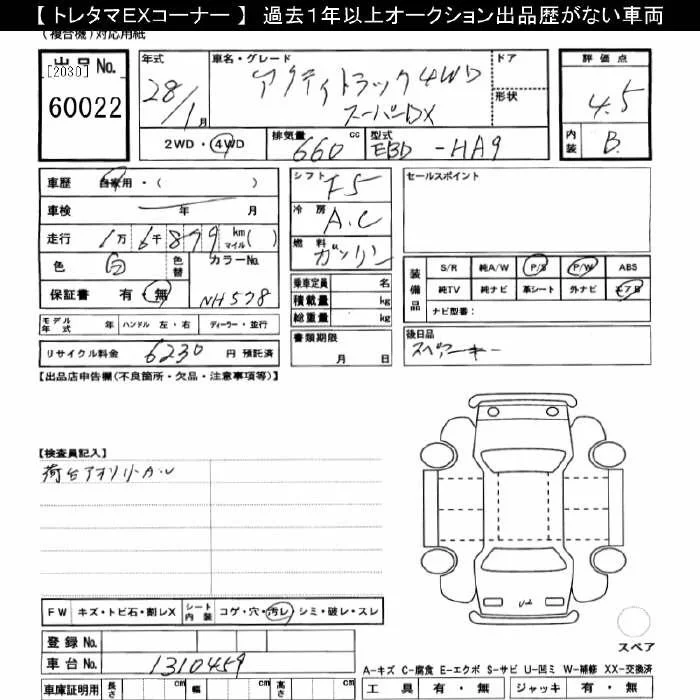 【トレタマEXコーナー】 過去1年以上オークション出品歴がない車両
(複合機)対応用紙
出品No. [2030]
60022
年式 28/1月
車名・グレード アクティトラック4WD
スーパーDX
ドア
形状
評価点 4.5
内装 B
2WD・4WD
排気量 660 cc
型式 EBD-HA9
車歴 自家用・( )
車検 年 月
走行 1万6千879 km マイル( )
色 白 色替
カラーNo. NH578
保証書 有・無
シフト F5
冷房 A.C
燃料 ガソリン
乗車定員 名
積載量 kg
総重量 kg
書類期限 月 日
セールスポイント
装備品
S/R 純A/W P/S P/W ABS
純TV 純ナビ 革シート 外ナビ エアB
ナビ型番:
後日品
スペアーキー
モデル年式 年 ハンドル 左・右 ディーラー・並行
リサイクル料金 6230 円 預託済
【出品店申告欄(不良箇所・欠品・注意事項等)】
【検査員記入】
荷台アオリ
FW キズ・トビ石・割レX シート内装 コゲ・穴・汚レ・シミ・破レ・スレ
登録No.
車台No. 1310459
車庫証明用 長さ cm 幅 cm 高さ cm
スペア
A-キズ C-腐食 E-エクボ S-サビ U-凹ミ W-補修 XX-交換済
工具 有・無 ジャッキ 有・無